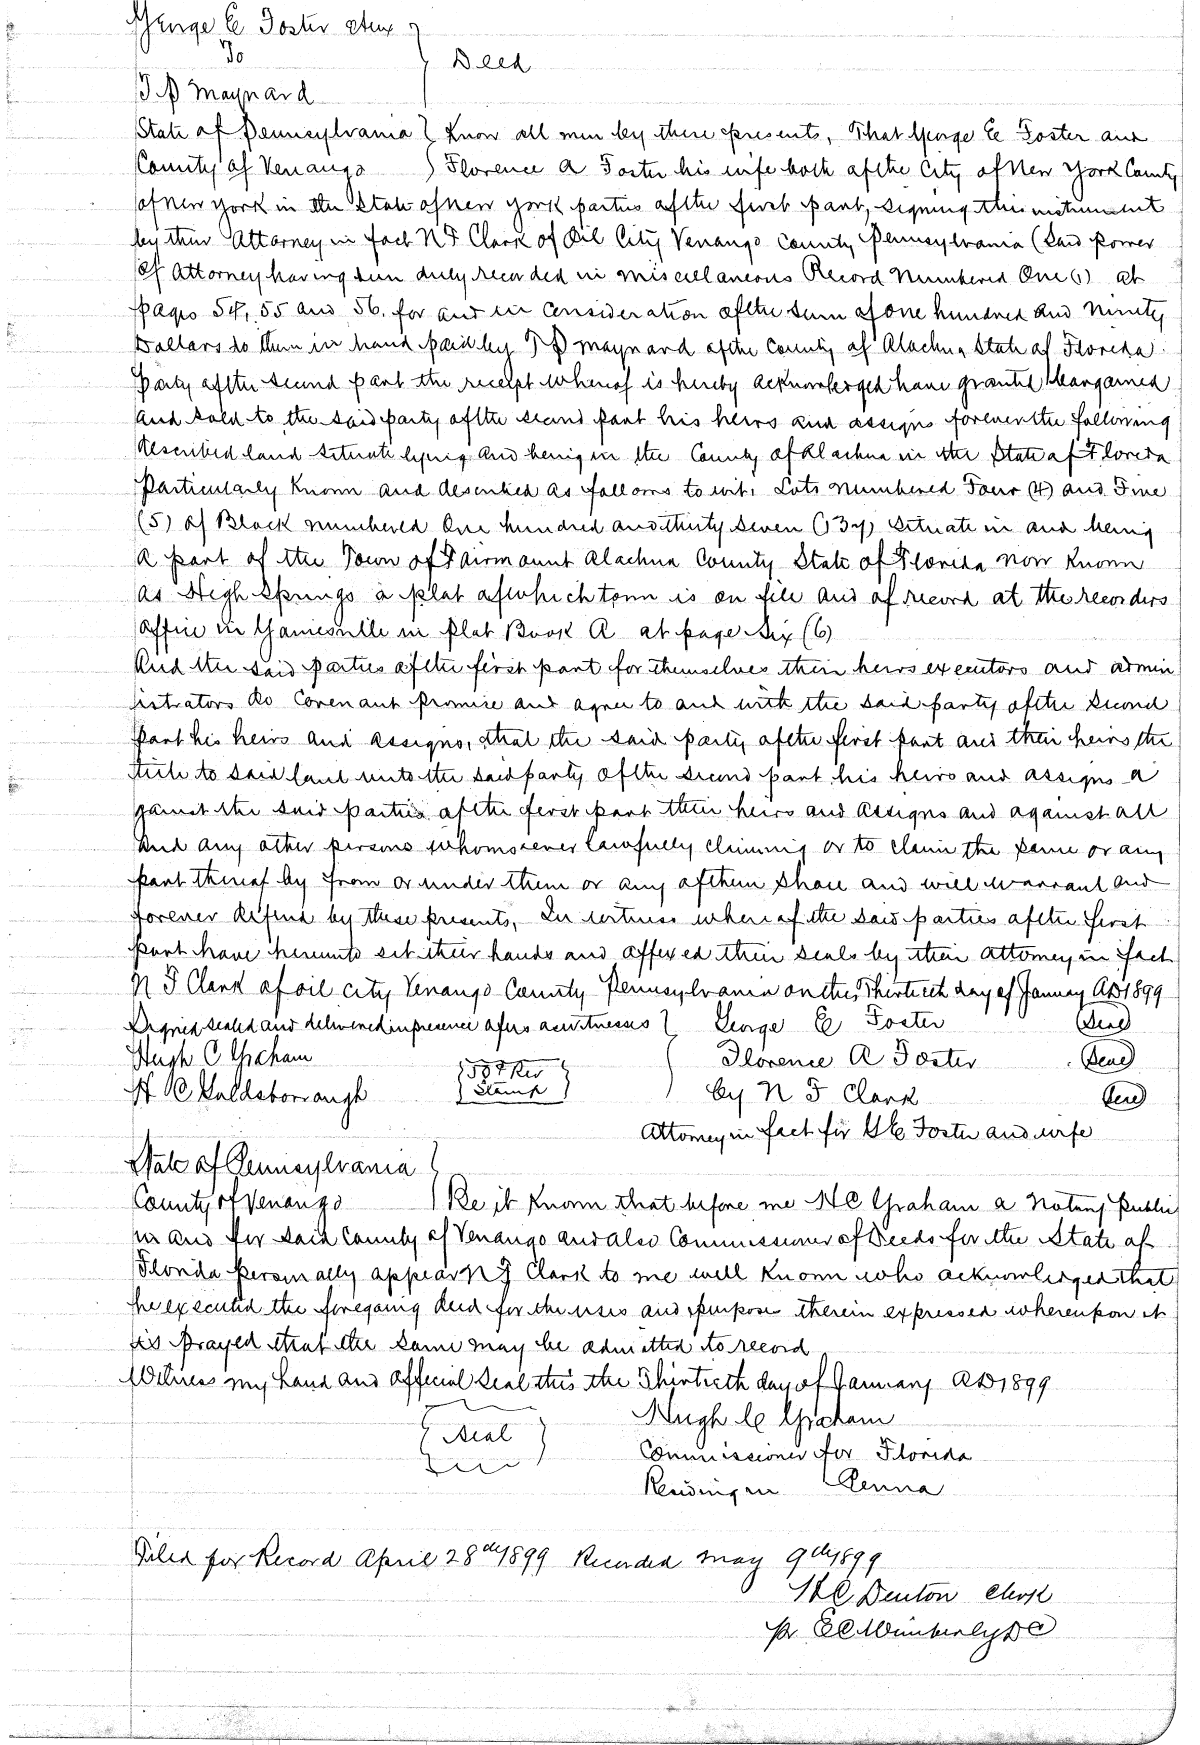 George E Foster et ux
To
Deed
J P Maynard
State of Pennsylvania } Know all men by these presents, That George E Foster and
County of Venango } Florence A Foster his wife both of the City of New York County
of New York in the State of New York parties of the first part, signing this instrument
by their Attorney in fact N F Clark of Oil City Venango County Pennsylvania (Said Power
of Attorney having been duly recorded in miscellaneous Record Numbered One (1) at
pages 54, 55 and 56. for and in consideration of the sum of one hundred and ninety
Dollars to them in hand paid by J P Maynard of the County of Alachua State of Florida
Party of the second part the receipt whereof is hereby acknowledged have granted bargained
and sold to the said party of the second part his heirs and assigns forever the following
described land situate lying and being in the County of Alachua in the State of Florida
Particularly known and described as follows to wit: Lots numbered Four (4) and Five
(5) of Block numbered One hundred and thirty seven (137) situate in and being
a part of the Town of Fairmount Alachua County State of Florida now known
as High Springs a plat of which town is on file and of record at the recorders
office in Gainesville in Plat Book A at page Six (6)
And the said parties of the first part for themselves their heirs executors and admin
istrators do covenant promise and agree to and with the said party of the second
part his heirs and assigns, that the said party of the first part and their heirs the
title to said land unto the said party of the second part his heirs and assigns a
gainst the said parties of the first part their heirs and assigns and against all
and any other persons whomsoever lawfully claiming or to claim the same or any
part thereof by from or under them or any of them shall and will warrant and
forever defend by these presents, In witness whereof the said parties of the first
part have hereunto set their hands and affixed their seals by their attorney in fact
N F Clark of oil city Venango County Pennsylvania on this Thirtieth day of January AD 1899
Signed sealed and delivered in presence of us as witnesses } George E Foster (Seal)
Hugh C Graham } Florence A Foster (Seal)
H C Goldsborough 50¢ Rev Stamp by N F Clark (Seal)
Attorney in fact for G E Foster and wife
State of Pennsylvania }
County of Venango } Be it known that before me H C Graham a Notary Public
in and for said County of Venango and also Commissioner of Deeds for the State of
Florida personally appear N F Clark to me well known who acknowledged that
he executed the foregoing deed for the uses and purposes therein expressed whereupon it
is prayed that the same may be admitted to record
Witness my hand and official seal this the Thirtieth day of January AD 1899
Hugh C Graham
Seal
Commissioner for Florida
Residing in Penna
Filed for Record April 28th 1899 Recorded May 9th 1899
H C Denton Clerk
pr E C Wimberly DC